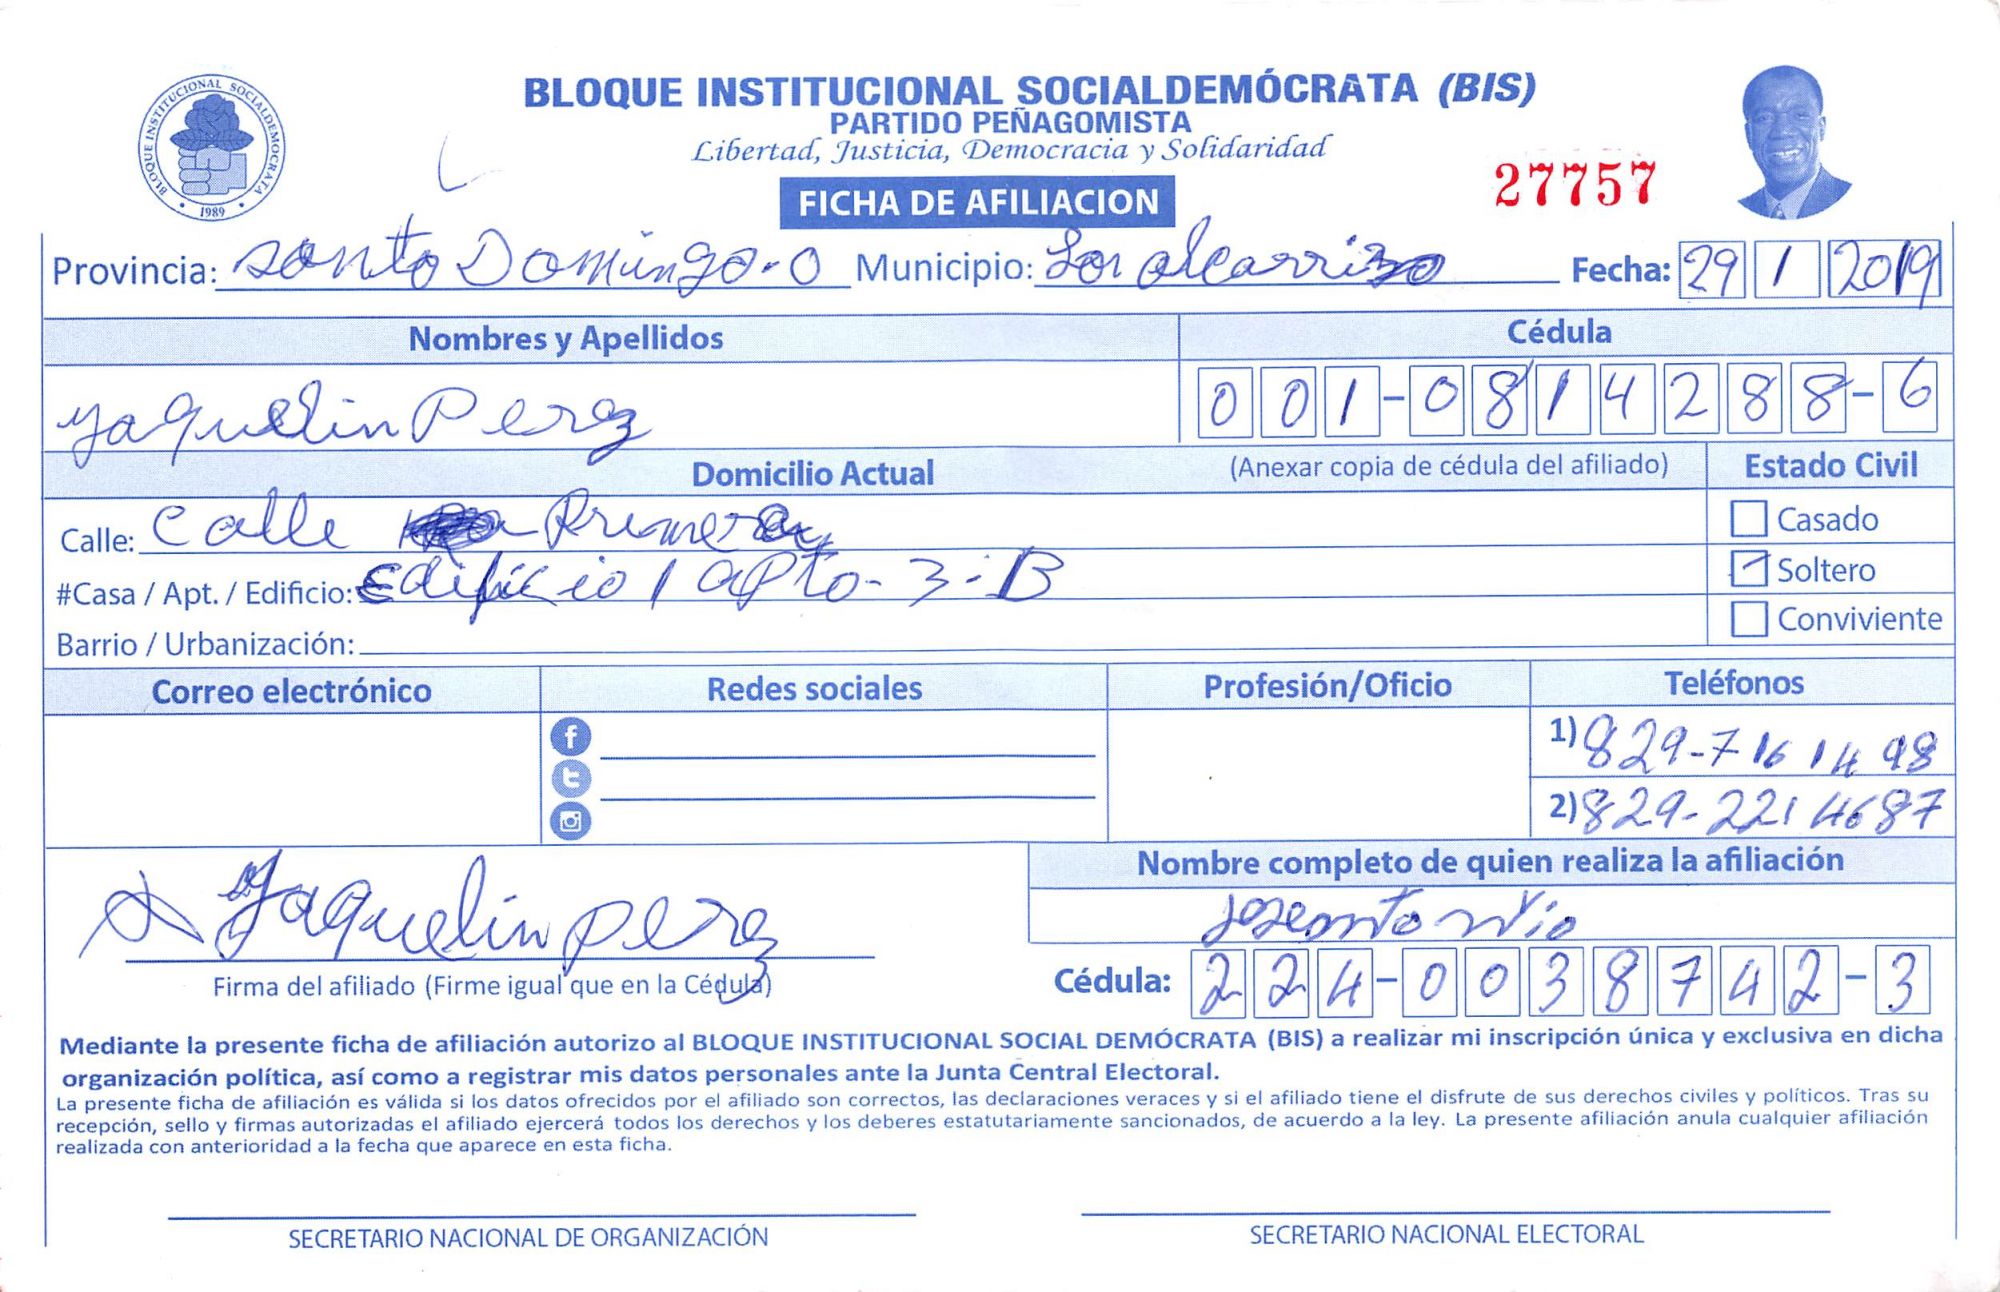 BLOQUE INSTITUCIONAL SOCIALDEMÓCRATA (BIS)
PARTIDO PEÑAGOMISTA
Libertad, Justicia, Democracia y Solidaridad
BLOQUE INSTITUCIONAL SOCIALDEMOCRATA
• 1989 •
27757
FICHA DE AFILIACION
Provincia: Santo Domingo-O Municipio: Los alcarrizo Fecha: 29 1 2019
Nombres y Apellidos Cédula
Yaquelin Perez 001-0814288-6
Domicilio Actual (Anexar copia de cédula del afiliado) Estado Civil
Calle: Calle Primera
Casado
#Casa / Apt. / Edificio: Edificio 1 apto-3-B
Soltero
Barrio / Urbanización:
Conviviente
Correo electrónico Redes sociales Profesión/Oficio Teléfonos
1) 829-716 1498
2) 829-221 4687
Nombre completo de quien realiza la afiliación
Yaquelin perez
Firma del afiliado (Firme igual que en la Cédula)
Cédula: 224-0038742-3
Mediante la presente ficha de afiliación autorizo al BLOQUE INSTITUCIONAL SOCIAL DEMÓCRATA (BIS) a realizar mi inscripción única y exclusiva en dicha
organización política, así como a registrar mis datos personales ante la Junta Central Electoral.
La presente ficha de afiliación es válida si los datos ofrecidos por el afiliado son correctos, las declaraciones veraces y si el afiliado tiene el disfrute de sus derechos civiles y políticos. Tras su
recepción, sello y firmas autorizadas el afiliado ejercerá todos los derechos y los deberes estatutariamente sancionados, de acuerdo a la ley. La presente afiliación anula cualquier afiliación
realizada con anterioridad a la fecha que aparece en esta ficha.
SECRETARIO NACIONAL DE ORGANIZACIÓN SECRETARIO NACIONAL ELECTORAL